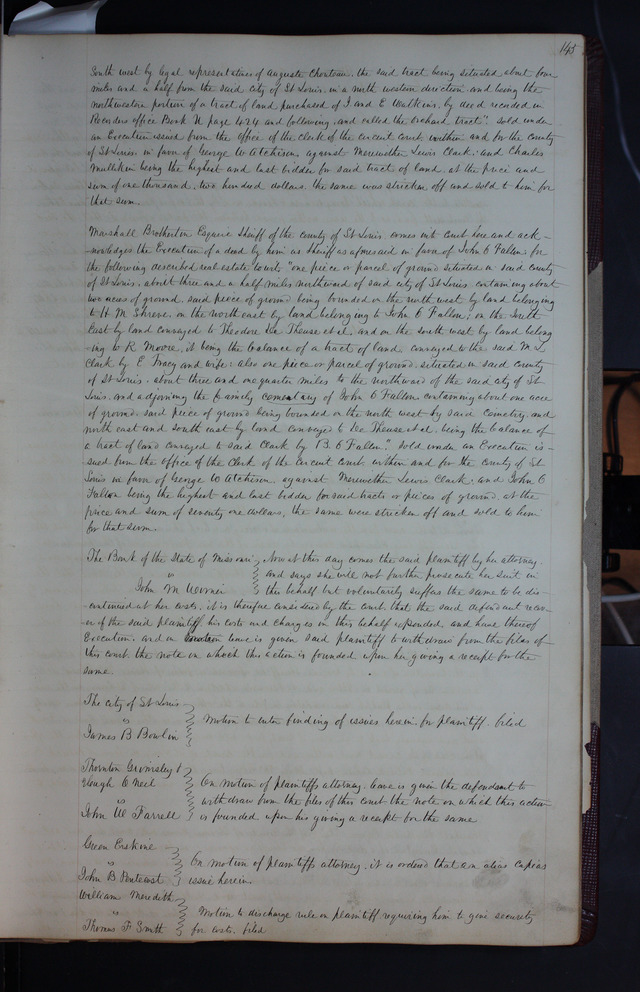 145
South west by legal representatives of Auguste Chouteau. the said tract being situated about four
miles and a half from the said city of St Louis. in a north western direction and being the
northwestern portion of a tract of land purchased of J and E Walkins. by deed recorded in
Recorders office Book N page 424 and following, and called the orchard tract". sold under
an Execution issued from the office of the clerk of the circuit court within and for the county
of St Louis. in favor of George W Atcheson. against Meriwether Lewis Clark; and Charles
Mullikin being the highest and last bidder for said tract of land, at the price and
sum of one thousand, two hundred dollars. the same was stricken off and sold to him for
that sum.
Marshall Brotherton Esquire Sheriff of the county of St Louis comes into court here and ack-
nowledges the Execution of a deed by him as Sheriff as aforesaid in favor of John O Fallon; for
the following described real estate towit: "one piece or parcel of ground situated in said county
of St Louis. about three and a half miles northward of said city of St Louis containing about
two acres of ground. said peice of ground being bounded on the north west by land belonging
to H M Shreve. on the north east by land belonging to John O Fallon; on the South
East by land conveyed to Theodore et al, and on the south west by land belong
ing to R Moore, it being the balance of a tract of land conveyed to the said M L
Clark by E Tracy and wife: also one piece or parcel of ground. situated in said county
of St Louis. about three and one quarter miles to the northward of the said city of St
Louis. and adjoining the family cemetary of John O Fallon containing about one acre
of ground. said piece of ground being bounded on the north west by said Cemetery. and
north east and south east by land conveyed to et al. being the balance of
a tract of land conveyed to said Clark by B. O Fallon". sold under an Execution is-
sued from the office of the Clerk of the Circuit Court within and for the county of St
Louis in favor of George W Atcheson. against Meriwether Lewis Clark; and John O
Fallon being the highest and last bidder for said tracts or peices of ground. at the
price and sum of seventy one dollars, the same were stricken off and sold to him
for that sum.
The Bank of the State of Missouri } Now at this day comes the said plaintiff by her attorney.
vs } and says she will not further prosecute her suit in
John M } this behalf but voluntarily suffers the same to be dis-
continued at her costs. it is therefore considered by the court that the said defendant recov-
er of the said plaintiff his costs and charges in this behalf expended and have thereof
Execution. and leave is given said plaintiff to withdraw from the files of
this court the note on which this action is founded upon her giving a receipt for the
same.
The City of St Louis }
vs } Motion to enter finding of issues herein. for plaintiff. filed
James B Bowlin }
Thornton Grimsley &
Hough O Neil } On motion of plaintiffs attorney. leave is given the defendant to
vs } withdraw from the files of this court the note on which this action
John W Farrell } is founded upon his giving a receipt for the same
Green Erskine }
vs } On motion of plaintiffs attorney. it is ordered that an alias capias
John B Pentecost } issue herein.
William Meredith }
vs } Motion to discharge rule on plaintiff requiring him to give security
Thomas F Smith } for costs. filed